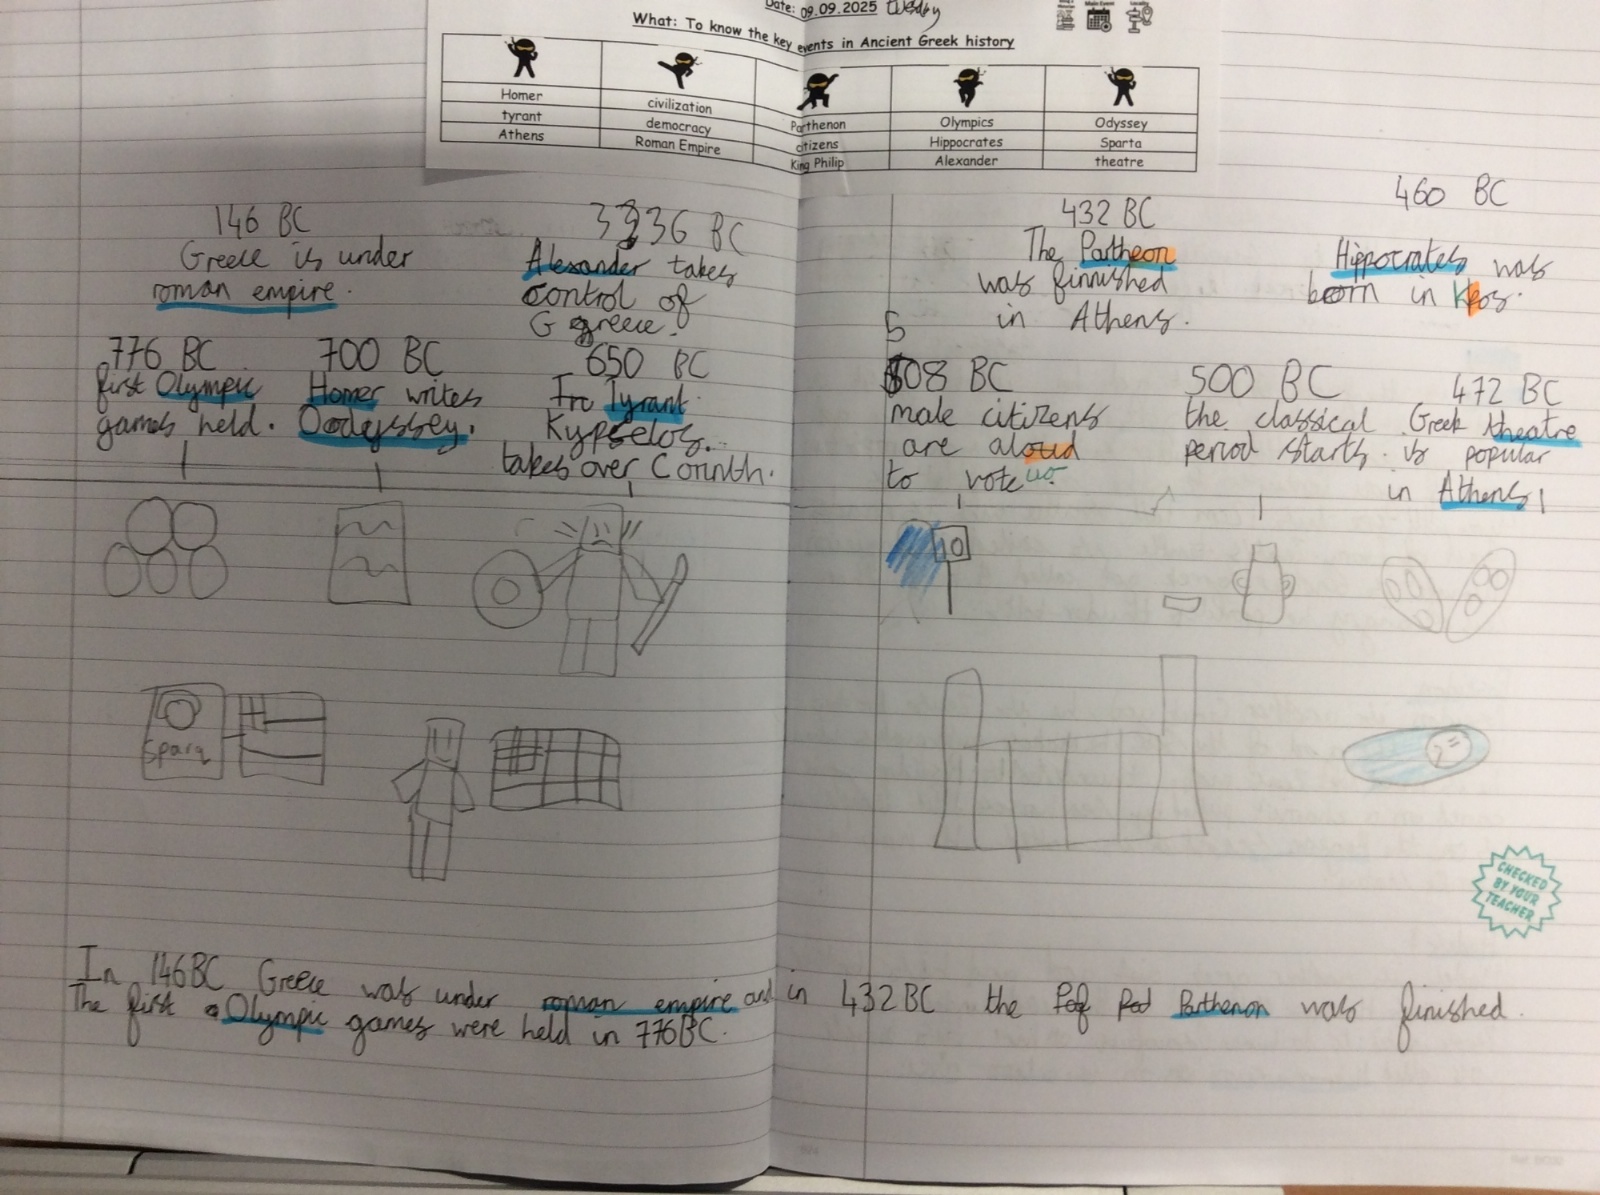 Date: 09.09.2025 tuesday
What: To know the key events in Ancient Greek history
Homer civilization Parthenon Olympics Odyssey
tyrant democracy citizens Hippocrates Sparta
Athens Roman Empire King Philip Alexander theatre
146 BC
Greece is under
roman empire.
336 BC
Alexander takes
control of
G greece.
432 BC
The Partheon
was finnished
in Athens.
460 BC
Hippocrates was
born in Kos.
776 BC
first Olympic
games held.
700 BC
Homer writes
Oodyssey.
650 BC
Tyrant
Kypselos.
takes over Corinth.
508 BC
male citizens
are aloud
to vote
500 BC
the classical
period starts.
472 BC
Greek theatre
is popular
in Athens
10
Spara
CHECKED
BY YOUR
TEACHER
In 146BC Greece was under roman empire and in 432BC the Parthenon was finished.
The first Olympic games were held in 776BC.